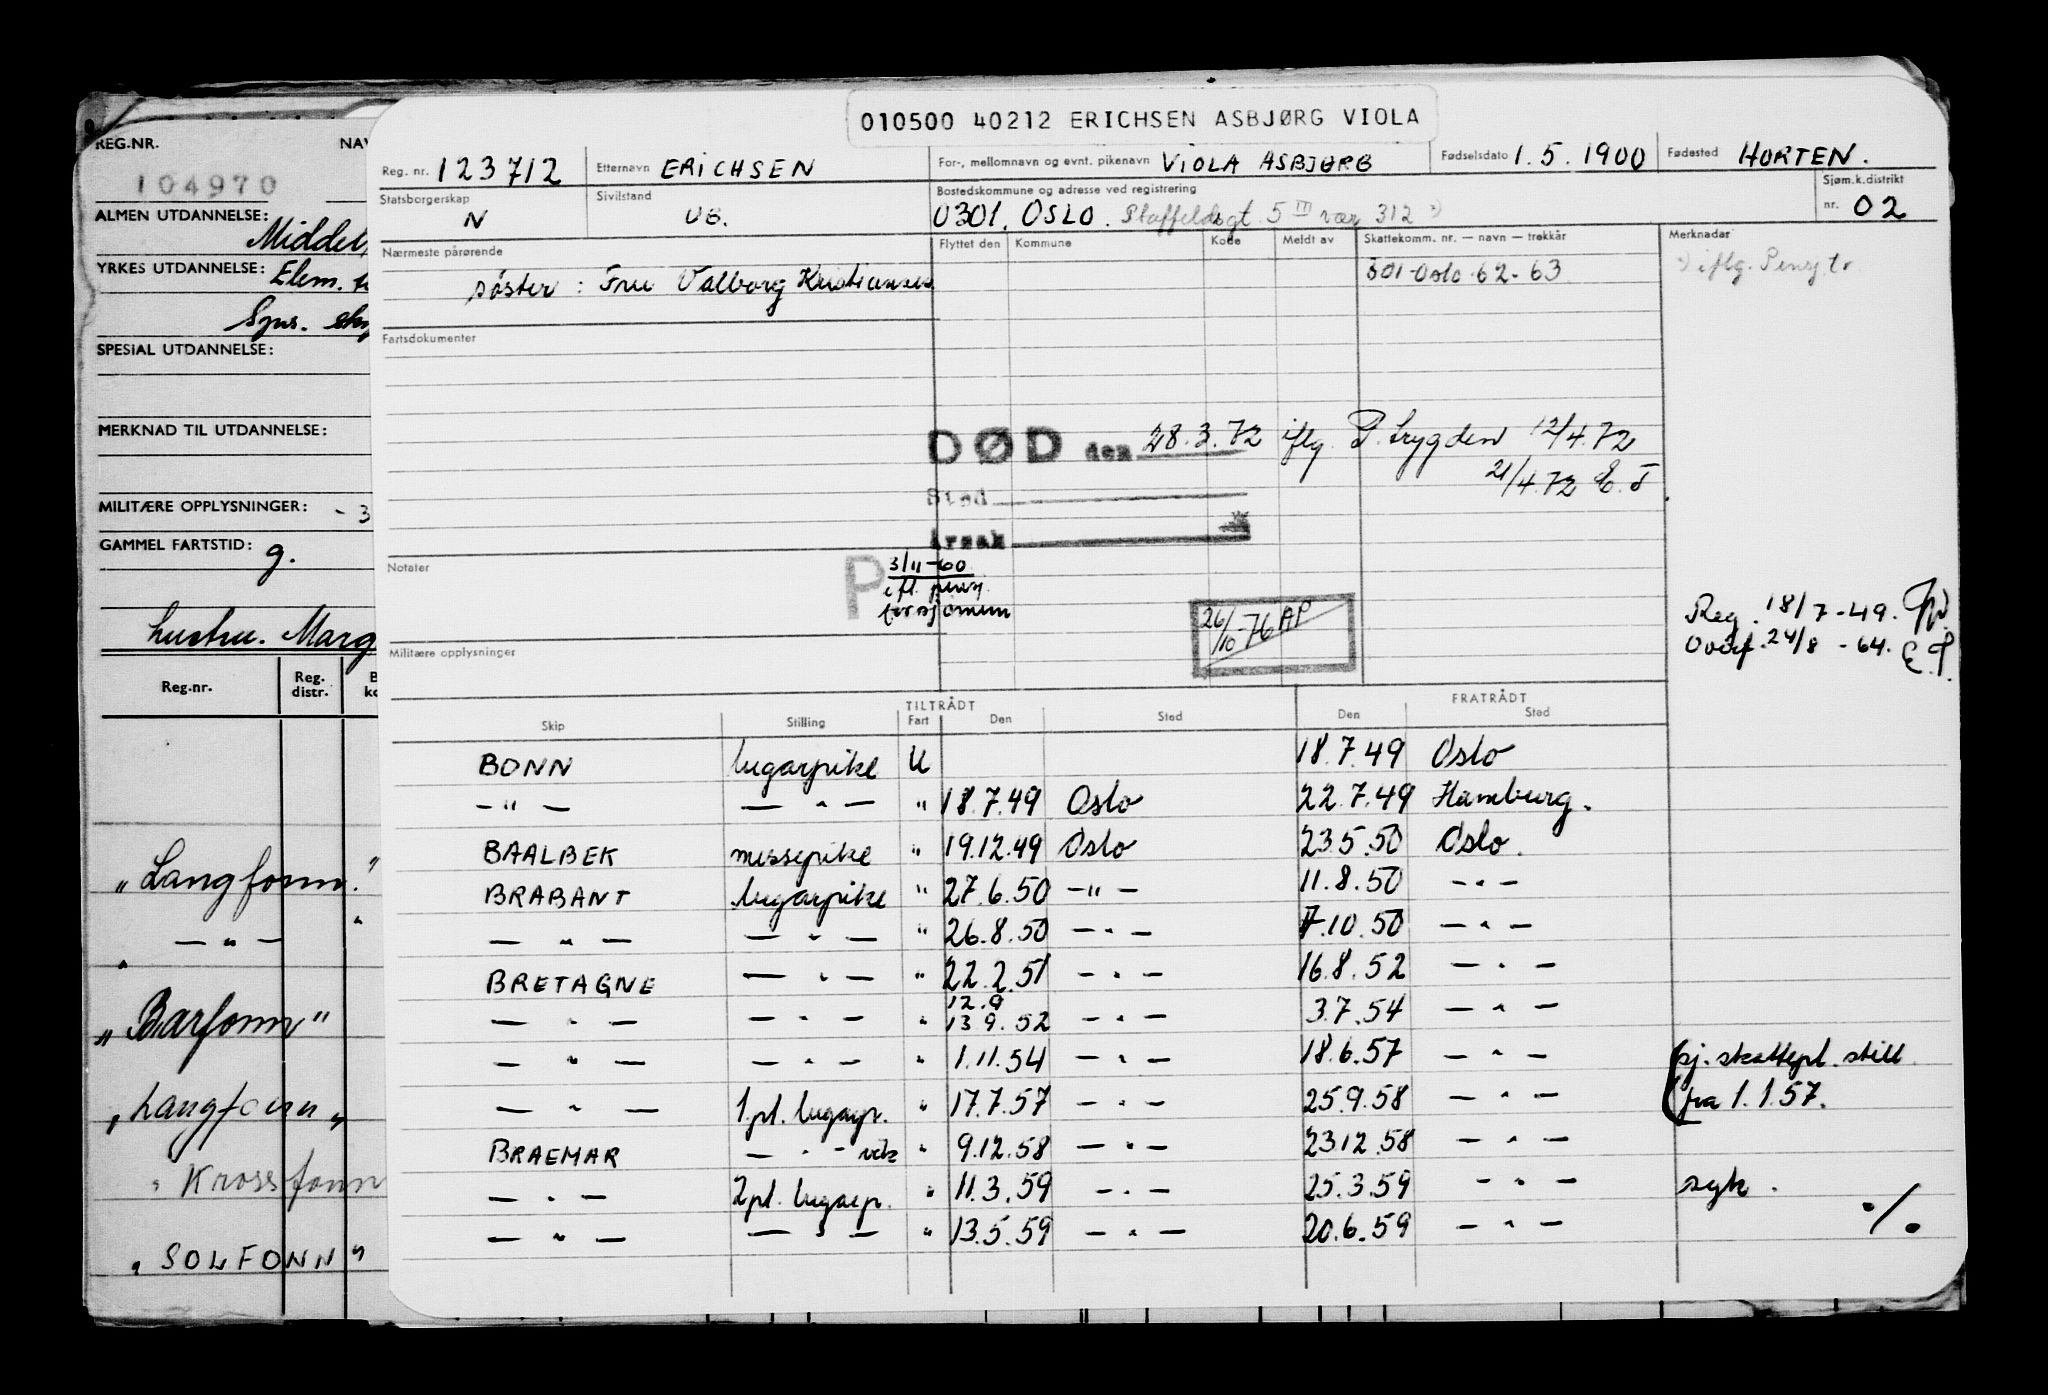 010500 40212 ERICHSEN ASBJØRG VIOLA
Reg. nr. 123712 Etternavn ERICHSEN For-, mellomnavn og evnt. pikenavn VIOLA ASBJØRG Fødselsdato 1.5.1900 Fødested HORTEN.
Statsborgerskap N Sivilstand UG. Bostedskommune og adresse ved registrering 0301. OSLO. Staffeldsgt. 5 III vær 312 Sjøm.k.distrikt nr. 02
Nærmeste pårørende Flyttet den Kommune Kode Meldt av Skattekomm. nr. — navn — trekkår Merknadar
søster: Fru Valborg Kristiansen 301-Oslo-62-63 iflg. Pensj.tr
Fartsdokumenter
DØD den 28.3.72 iflg. P. trygden 12/4.72
21/4.72 E.T
Sted
Årsak
Notater P 3/11-60
ifl. pensj.
for sjømenn
26/10-76 AP
Reg. 18/7-49.
Overf. 24/8-64.
Militære opplysninger
TILTRÅDT FRATRÅDT
Skip Stilling Fart Den Sted Den Sted
BONN lugarpike U 18.7.49 Oslo
—"— —"— " 18.7.49 Oslo 22.7.49 Hamburg.
BAALBEK messepike " 19.12.49 Oslo 23.5.50 Oslo.
BRABANT lugarpike " 27.6.50 —"— 11.8.50 —"—
—"— —"— " 26.8.50 —"— 7.10.50 —"—
BRETAGNE —"— " 22.2.51 —"— 16.8.52 —"—
12.9
—"— —"— " 13 9.52 —"— 3.7.54 —"—
—"— —"— " 1.11.54 —"— 18.6.57 —"— sj. skattepl. still.
—"— 1.pl. lugarp. " 17.7.57 —"— 25.9.58 —"— fra 1.1.57.
BRAEMAR —"— vik " 9.12.58 —"— 23.12.58 —"—
—"— 2pl. lugarp. " 11.3.59 —"— 25.3.59 —"— syk.
—"— —"— " 13.5.59 —"— 20.6.59 —"— ./.
REG.NR. NAV
104970
ALMEN UTDANNELSE: Middel
YRKES UTDANNELSE: Elem.
SPESIAL UTDANNELSE:
MERKNAD TIL UTDANNELSE:
MILITÆRE OPPLYSNINGER: - 3
GAMMEL FARTSTID: g.
hustru. Marg
Reg.nr. Reg. distr.
"Langfonn."
—"—
"Barfonn"
"Langfonn"
" Krossfonn
"SOLFONN"